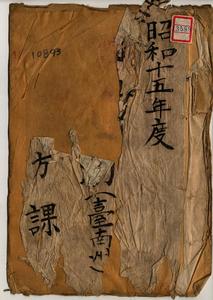 昭和十五年度
10893
(臺南州)
方課